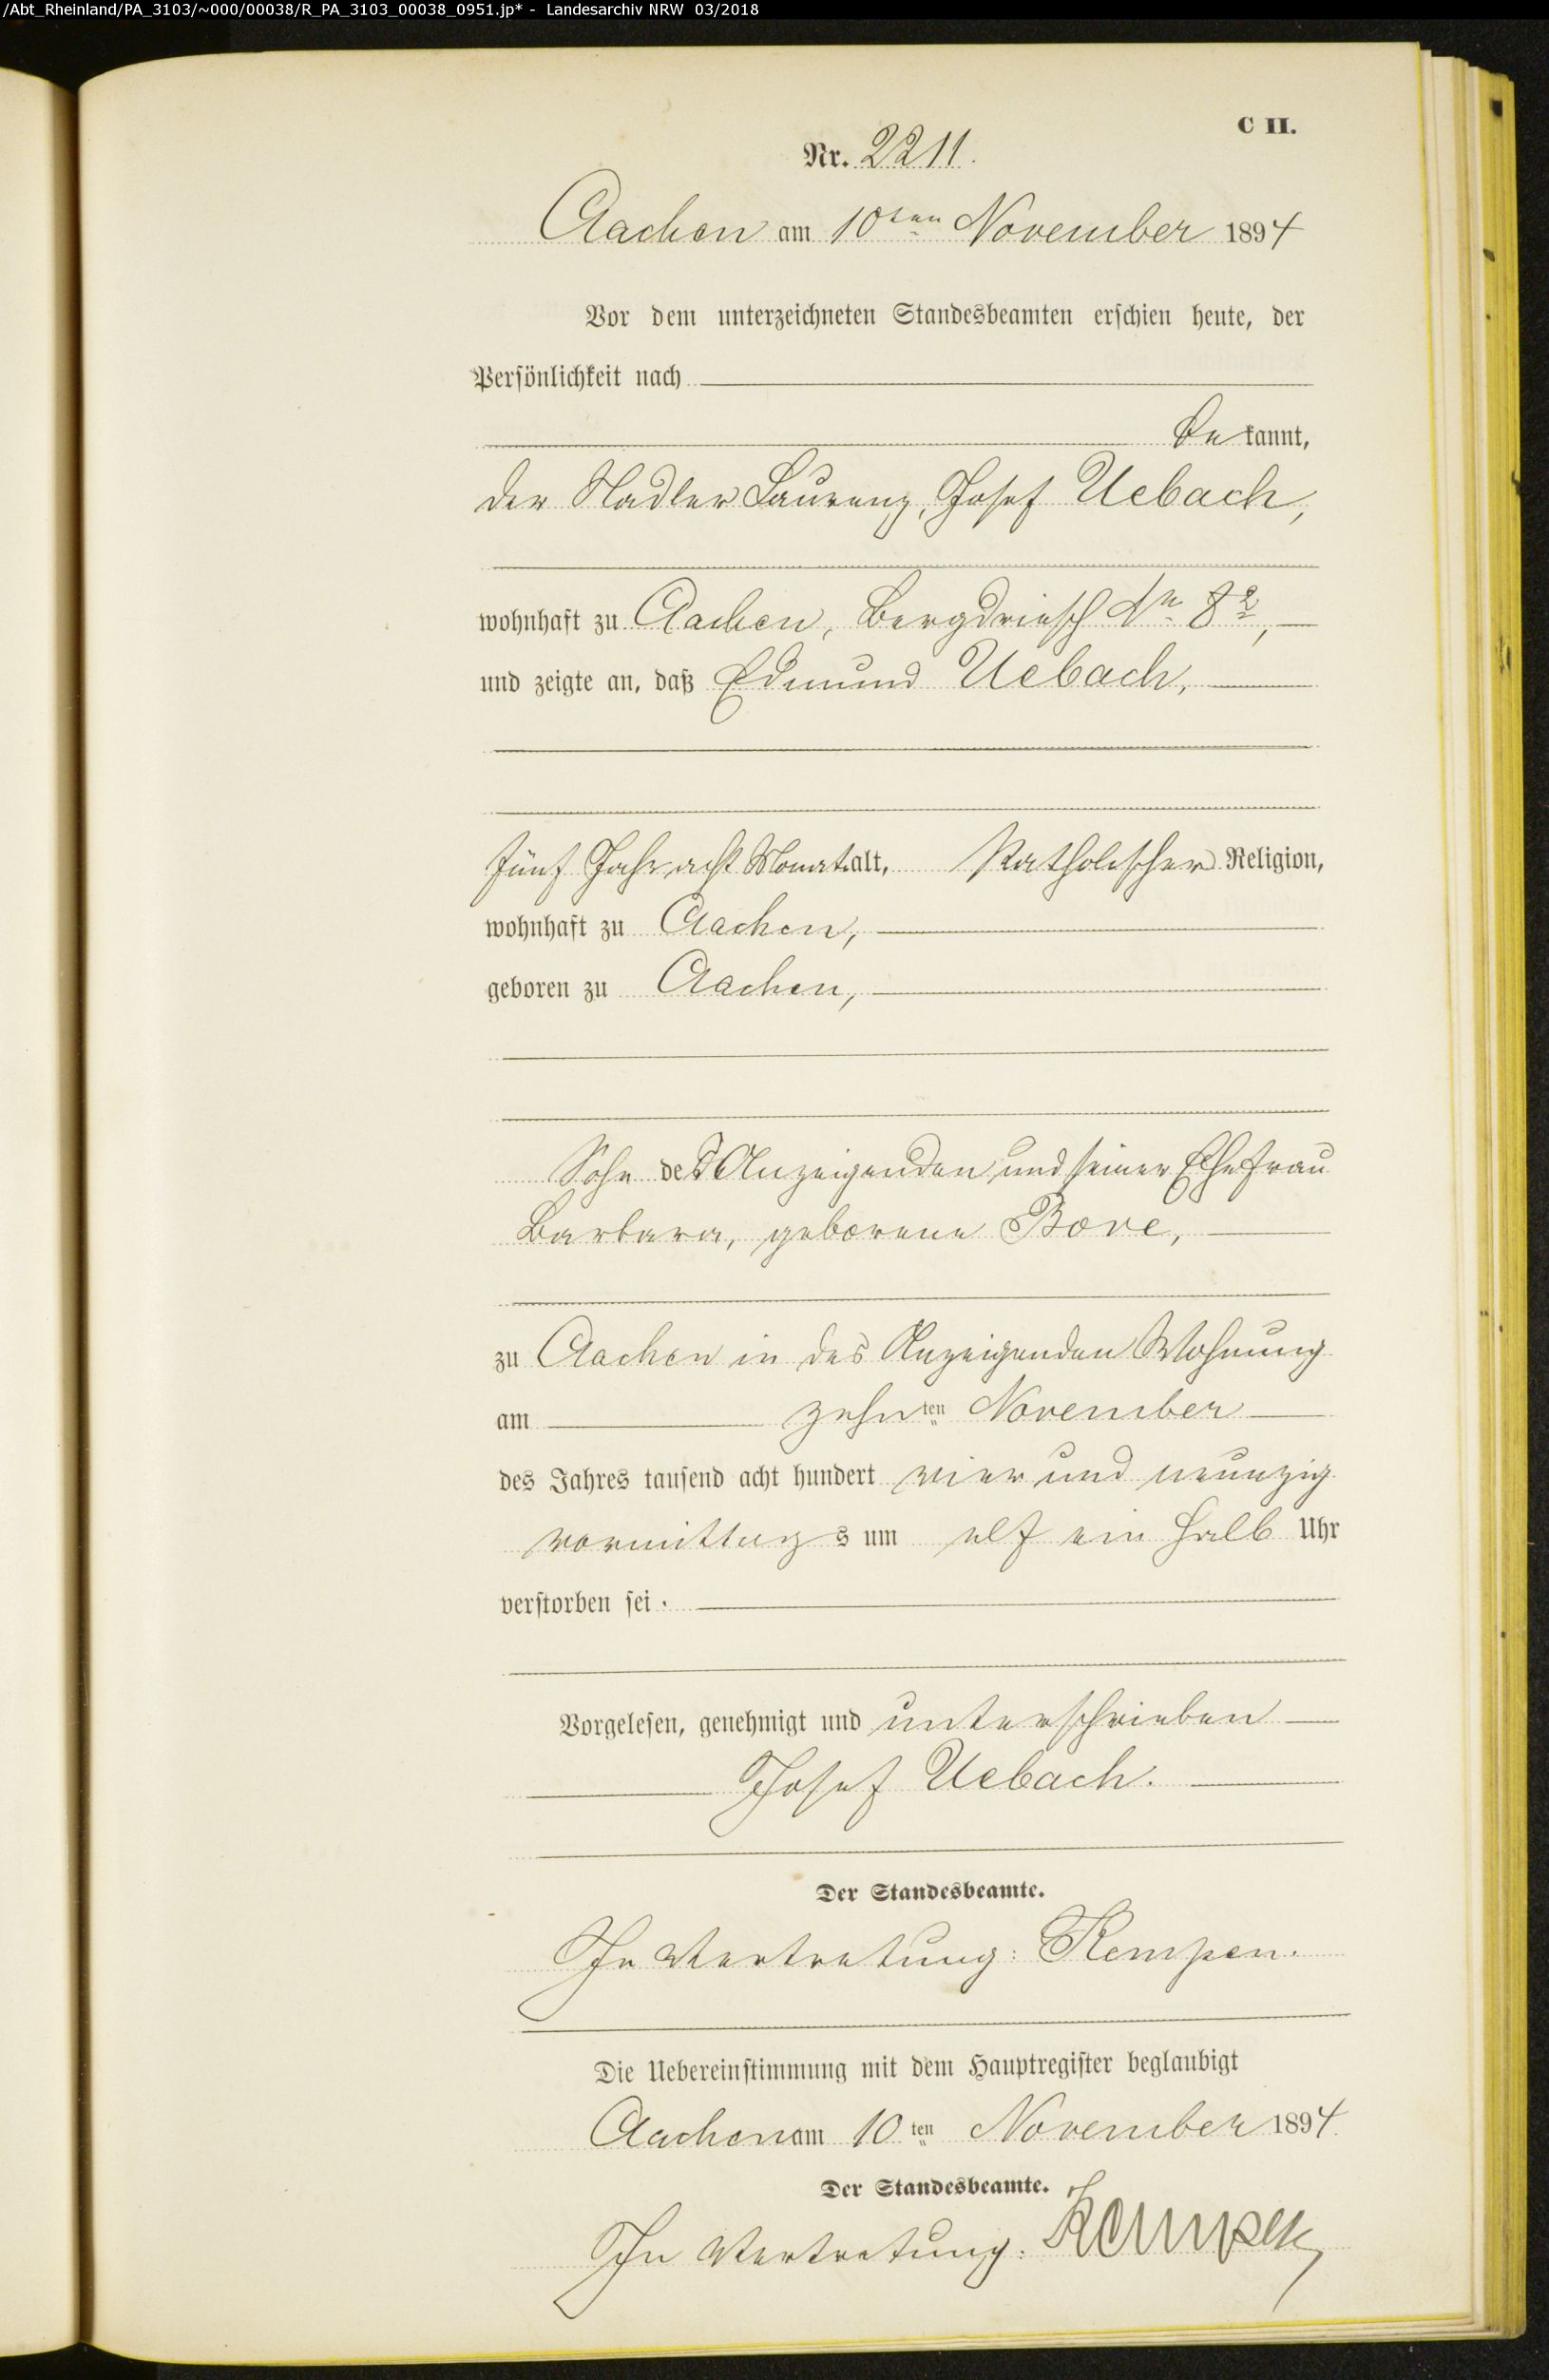 /Abt_Rheinland/PA_3103/~000/00038/R_PA_3103_00038_0951.jp* - Landesarchiv NRW 03/2018
C II.
Nr. 2211.
Aachen am 10ten November 1894
Vor dem unterzeichneten Standesbeamten erschien heute, der
Persönlichkeit nach
be kannt,
der Nadler Laurenz, Josef Uebach,
wohnhaft zu Aachen, Bergdriesch No 8 2,
und zeigte an, daß Edmund Uebach,
fünf Jahr acht Monat alt, Katholischer Religion,
wohnhaft zu Aachen,
geboren zu Aachen,
Sohn des Anzeigenden und seiner Ehefrau
Barbara, geborene Bove,
zu Aachen in des Anzeigenden Wohnung
am zehnten November
des Jahres tausend acht hundert vier und neunzig
vormittags um elf ein halb Uhr
verstorben sei.
Vorgelesen, genehmigt und unterschrieben
Josef Uebach.
Der Standesbeamte.
In Vertretung: Kempen.
Die Uebereinstimmung mit dem Hauptregister beglaubigt
Aachen am 10ten November 1894.
Der Standesbeamte.
In Vertretung: Kempen